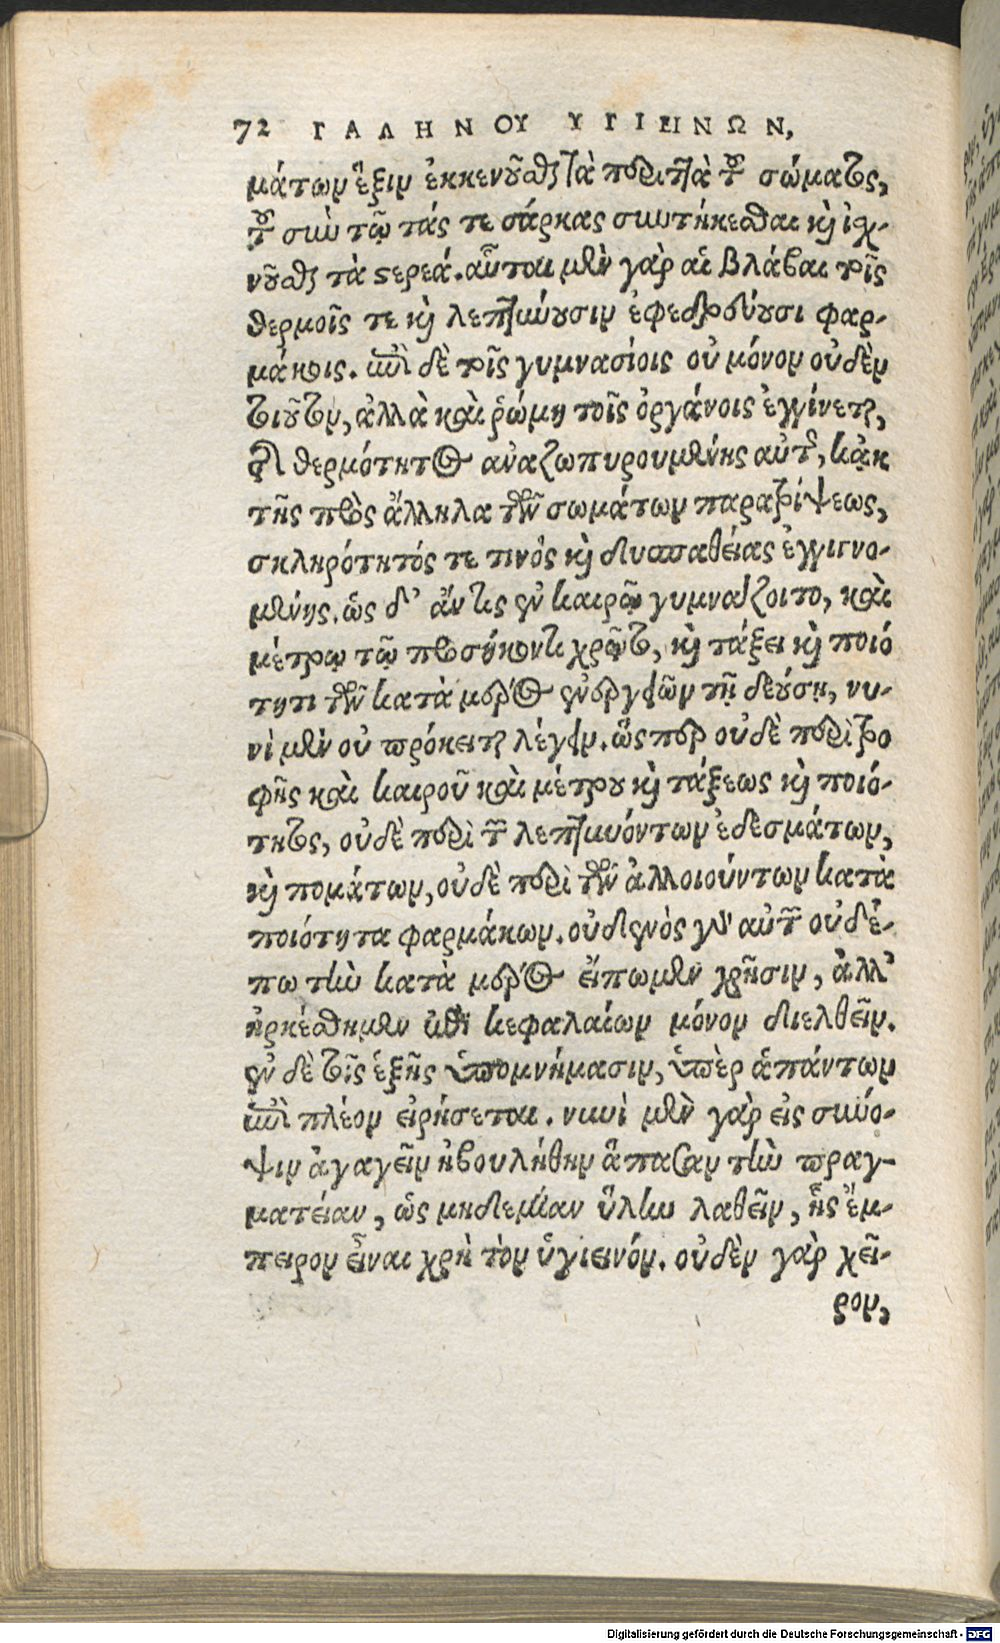 72 ΓΑΛΗΝΟΥ ΥΓΙΕΙΝΩΝ,
μάτων ἕξιν ἐκκενοῦσθαι τὰ περιττὰ τοῦ σώματος,
τοῦ σὺν τῷ τάς τε σάρκας συντήκεσθαι καὶ ἰσχ-
νοῦσθαι τὰ στερεά. αὗται μὲν γὰρ αἱ βλάβαι τοῖς
θερμοῖς τε καὶ λεπτύνουσιν ἐφεδρεύουσι φαρ-
μάκοις. ἐπὶ δὲ τοῖς γυμνασίοις οὐ μόνον οὐδὲν
τοιοῦτον, ἀλλὰ καὶ ῥώμη τοῖς ὀργάνοις ἐγγίνεται,
τῆς θερμότητος ἀναζωπυρουμένης αὐτῶν, κἀκ
τῆς πρὸς ἄλληλα τῶν σωμάτων παρατρίψεως,
σκληρότητός τε τινὸς καὶ δυσπαθείας ἐγγιγνο-
μένης. ὡς δ' ἄν τις ἐν καιρῷ γυμνάζοιτο, καὶ
μέτρῳ τῷ προσήκοντι χρῷτο, καὶ τάξει καὶ ποιό
τητι τῶν κατὰ μέρος ἐνεργειῶν τῇ δεούσῃ, νυ-
νὶ μὲν οὐ πρόκειται λέγειν. ὥσπερ οὐδὲ περὶ τρο
φῆς καὶ καιροῦ καὶ μέτρου καὶ τάξεως καὶ ποιό-
τητος, οὐδὲ περὶ τῶν λεπτυνόντων ἐδεσμάτων,
καὶ πομάτων, οὐδὲ περὶ τῶν ἀλλοιούντων κατὰ
ποιότητα φαρμάκων. οὐδενὸς γὰρ αὐτῶν οὐδέ-
πω τὴν κατὰ μέρος εἴπωμεν χρῆσιν, ἀλλ'
ἠρκέσθημεν ἐπὶ κεφαλαίων μόνον διελθεῖν.
ἐν δὲ τοῖς ἑξῆς ὑπομνήμασιν, ὑπὲρ ἁπάντων
ἐπὶ πλέον εἰρήσεται. νυνὶ μὲν γὰρ εἰς σύνο-
ψιν ἀγαγεῖν ἠβουλήθην ἅπασαν τὴν πραγ-
ματείαν, ὡς μηδεμίαν ὕλην λαθεῖν, ἧς ἔμ-
πειρον εἶναι χρὴ τὸν ὑγιεινόν. οὐδὲν γὰρ χεῖ-
ρον,
Digitalisierung gefördert durch die Deutsche Forschungsgemeinschaft - DFG